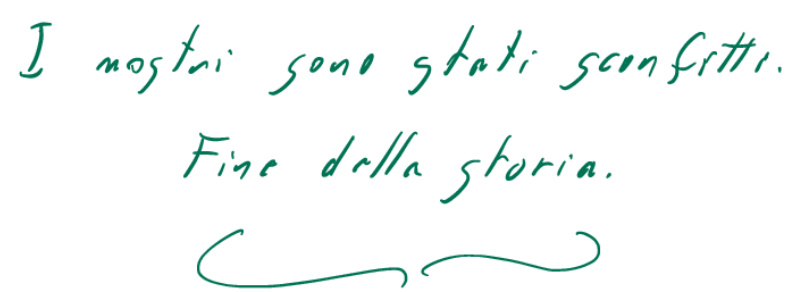 I nostri sono stati sconfitti.
Fine della storia.